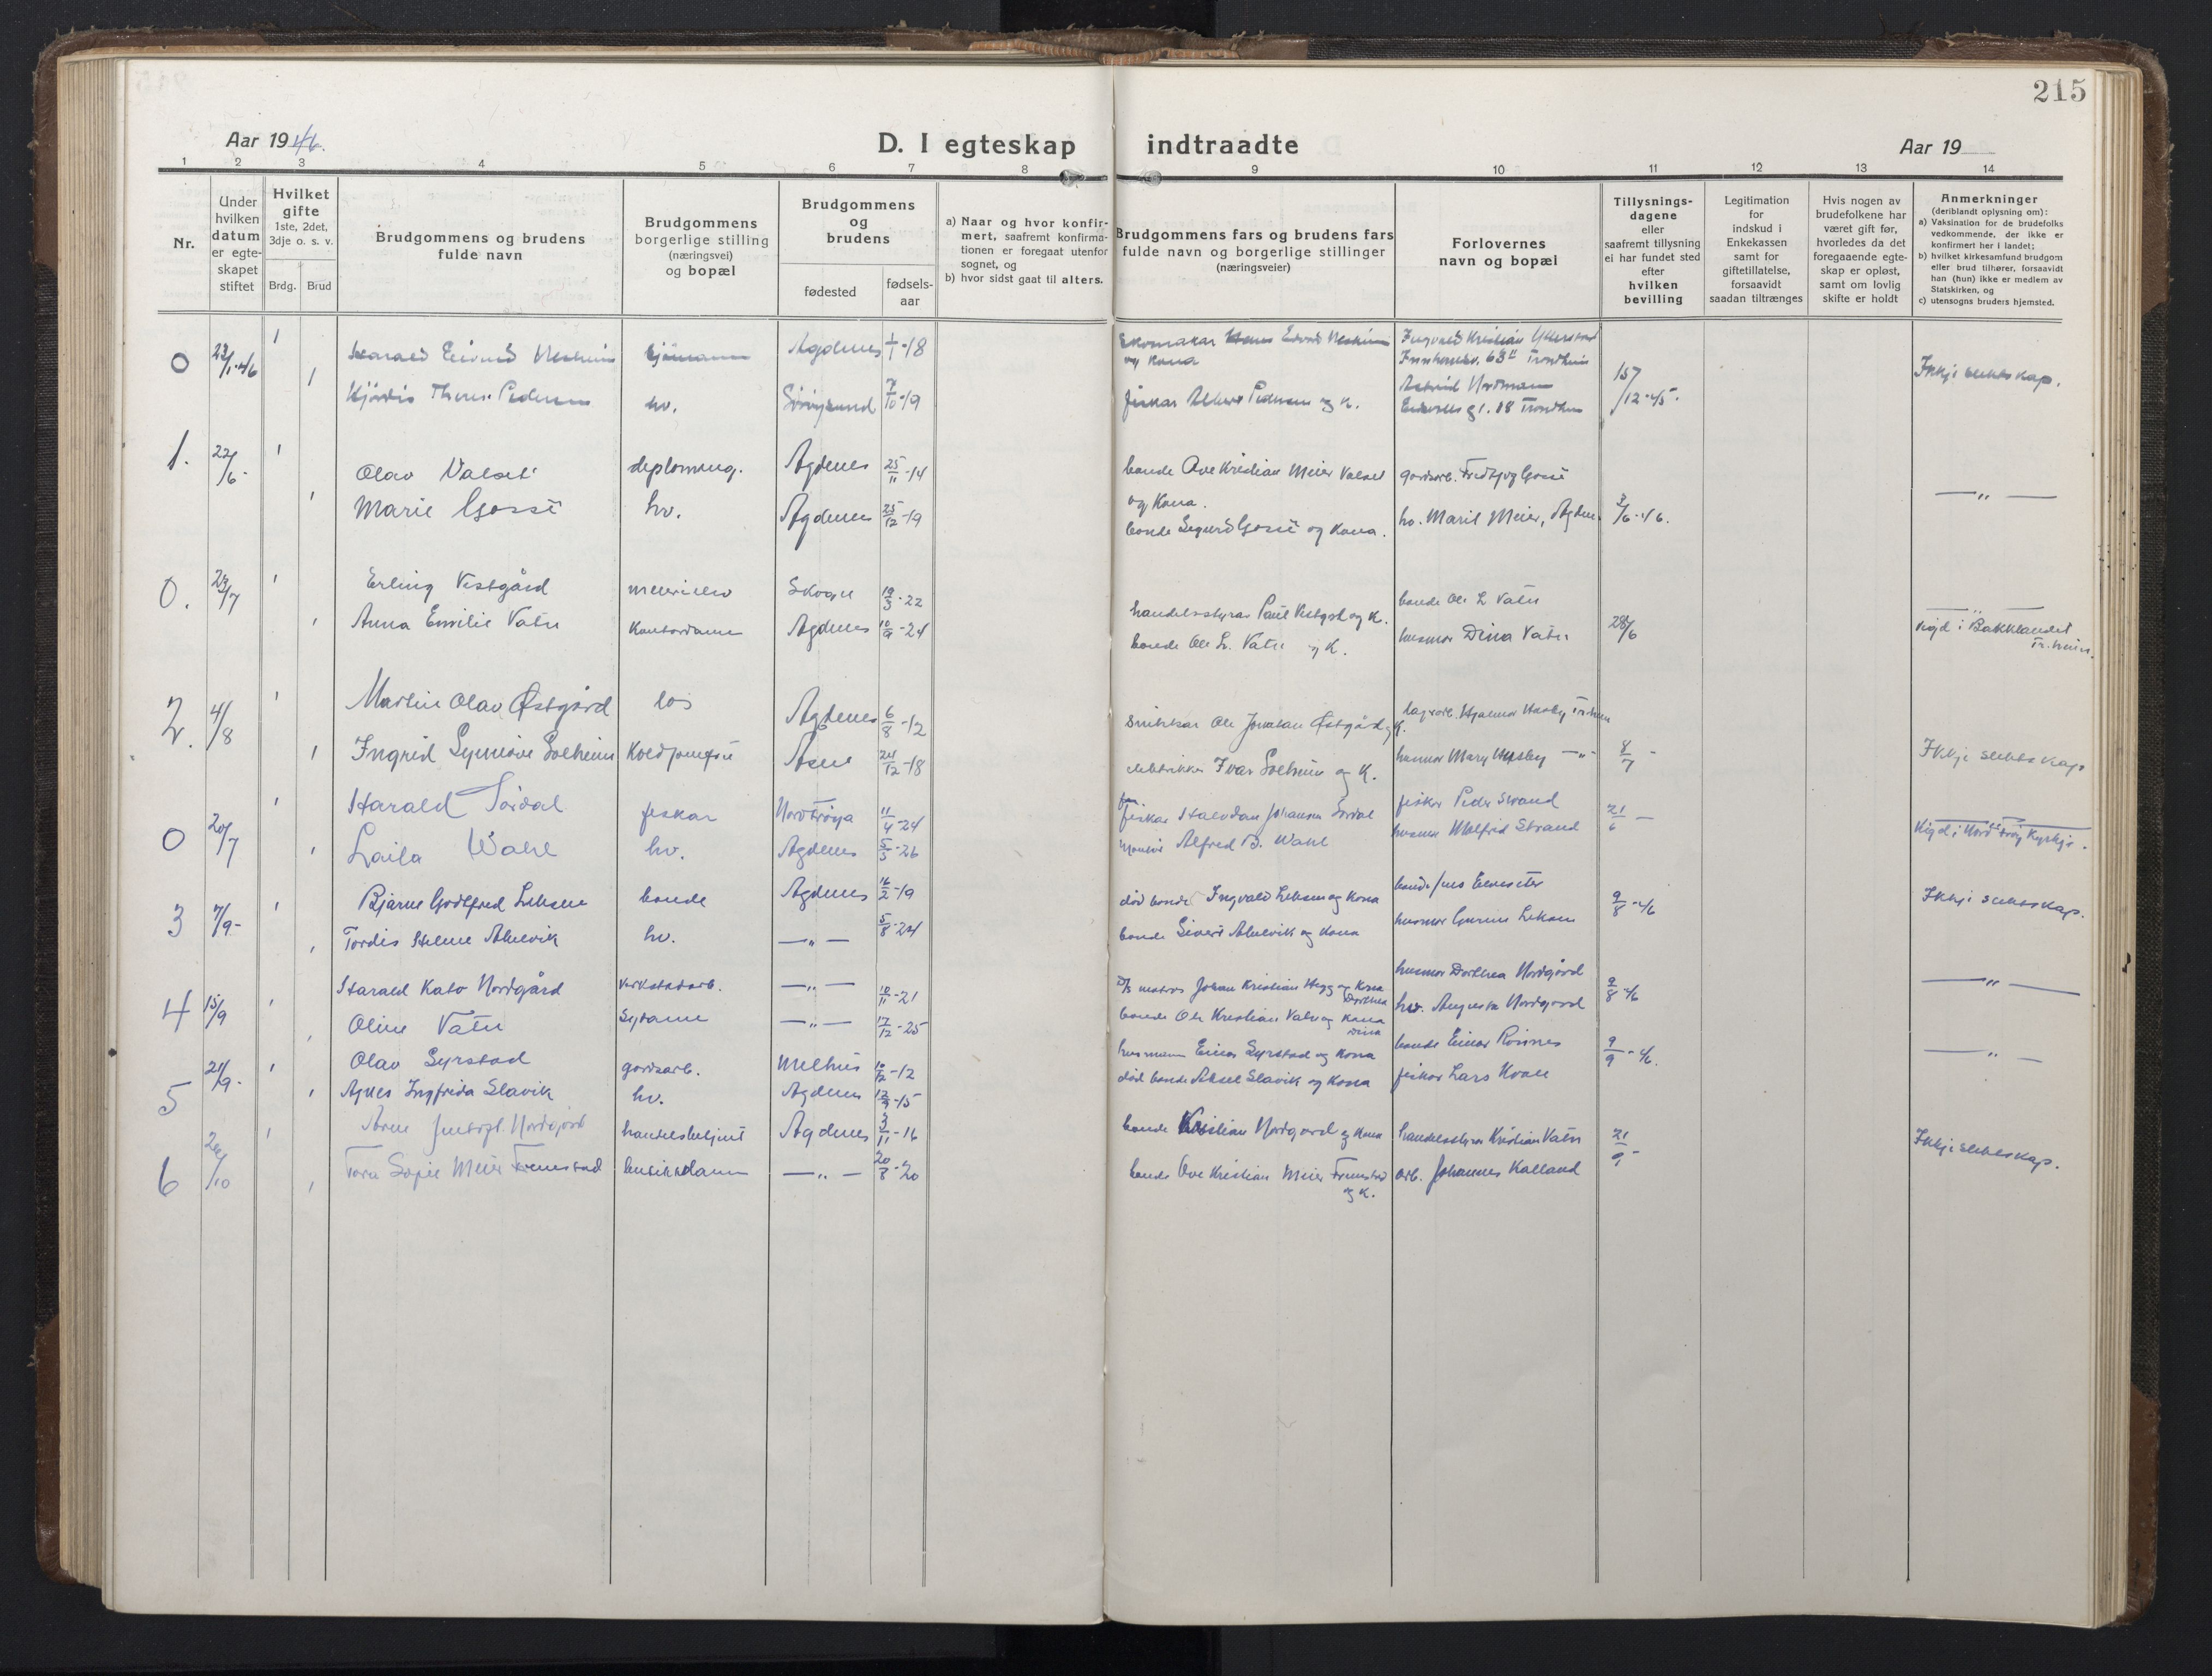 215
Aar 1946.
D. I egteskap indtraadte
Aar 19
1 2 3 4 5 6 7 8 9 10 11 12 13 14
Nr.
Under hvilken datum er egte-skapet stiftet
Hvilket gifte
1ste, 2det, 3dje o. s. v.
Brdg. Brud
Brudgommens og brudens fulde navn
Brudgommens borgerlige stilling (næringsvei) og bopæl
Brudgommens og brudens
fødested
fødsels-aar
a) Naar og hvor konfir-mert, saafremt konfirma-tionen er foregaat utenfor sognet, og
b) hvor sidst gaat til alters.
Brudgommens fars og brudens fars fulde navn og borgerlige stillinger (næringsveier)
Forlovernes navn og bopæl
Tillysnings-dagene eller saafremt tillysning ei har fundet sted efter hvilken bevilling
Legitimation for indskud i Enkekassen samt for giftetillatelse, forsaavidt saadan tiltrænges
Hvis nogen av brudefolkene har været gift før, hvorledes da det foregaaende egte-skap er opløst, samt om lovlig skifte er holdt
Anmerkninger
(deriblandt oplysning om):
a) Vaksination for de brudefolks vedkommende, der ikke er konfirmert her i landet;
b) hvilket kirkesamfund brudgom eller brud tilhører, forsaavidt han (hun) ikke er medlem av Statskirken, og
c) utensogns bruders hjemsted.
0 23/1-46 1 Harald Eivind sjømann Agdenes 1/1-18 Skomakar og Kona Ingvald Kristian Trondheim
1 Hjørdis Pedersen hv. 7/10-19 fiskar Albert Pedersen og K. Astrid Nordmann Trondheim 157/12-45. Ikkje slektskap.
1. 22/6- 1 Olav Valset Agdenes 25/11-14 bonde Ove Kristian Meier Valset og Kona.
1 Marie Gossé hv. Agdenes 25/12-19 bonde Sigurd Gossé og Kona. hv. Marit Meier, Agden. 3/6-46. — " —
0. 23/7 1 Erling Vestgård Skogn 19/3-22 handelsstyrar Paul Vestgård og K. bonde Ole L Vatn
1 Anna Emilie Vatn Kontordame Agdenes 10/9-24 bonde Ole L. Vatn og K. husmor Dina Vatn 28/6 — " — Vigd i Bakklandet Tr.heim.
2. 4/8 1 Martin Olav Østgård los Agdenes 6/8-12 Snikkar Ole Jonatan Østgård og K. Hjalmar Husby Tr.heim
1 Ingrid Synnøve Solheim Åsen 24/12-18 Ivar Solheim og K. husmor Mary Husby — " — 8/7 - Ikkje slektskap
0 20/7 1 Harald Sørdal fiskar Nord Frøya 11/4-24 fiskar Halvdan Johansen Sørdal fiskar Peder Strand 21/6 -
1 Laila Wahl hv. Agdenes 5/5-26 Alfred B. Wahl husmor Strand — " — Vigd i Nord Frøy Kyrkje.
3 7/9- 1 Bjarne Godtfred Leksen bonde Agdenes 16/2-19 død bonde Ingvald Leksen og Kona bonde Jens
1 Tordis Helene hv. — " — 5/8-24 bonde Sivert og Kona husmor Leksen 9/8-46 Ikkje slektskap.
4 15/9 1 Harald Kato Nordgård verkstadarb. — " — 10/11-21 matros Johan Kristian Hegg og Kona Dorthea husmor Dorthea Nordgård
1 Oline Vatn Sydame — " — 17/12-25 bonde Ole Kristian Vatn og Kona Dina hv. Augusta Nordgård 9/8-46 — " —
5 21/9- 1 Olav Syrstad gardsarb. Melhus 10/12-12 husmann Einar Syrstad og Kona bonde Einar Rønnes 9/9-46.
1 Agnes Ingfrida Slavik hv. Agdenes 12/9-15 død bonde Aksel Slavik og Kona fiskar Lars — " —
6 26/10 1 Arne Nordgård handelsbetjent Agdenes 3/11-16 bonde Kristian Nordgård og Kona handelsstyrar Kristian Vatn 21/9 -
1 Tora Sofie Meier Fremstad butikkdame — " — 20/8-20 bonde Ove Kristian Meier Fremstad og K. arb. Johannes Kalland Ikkje slektskap.